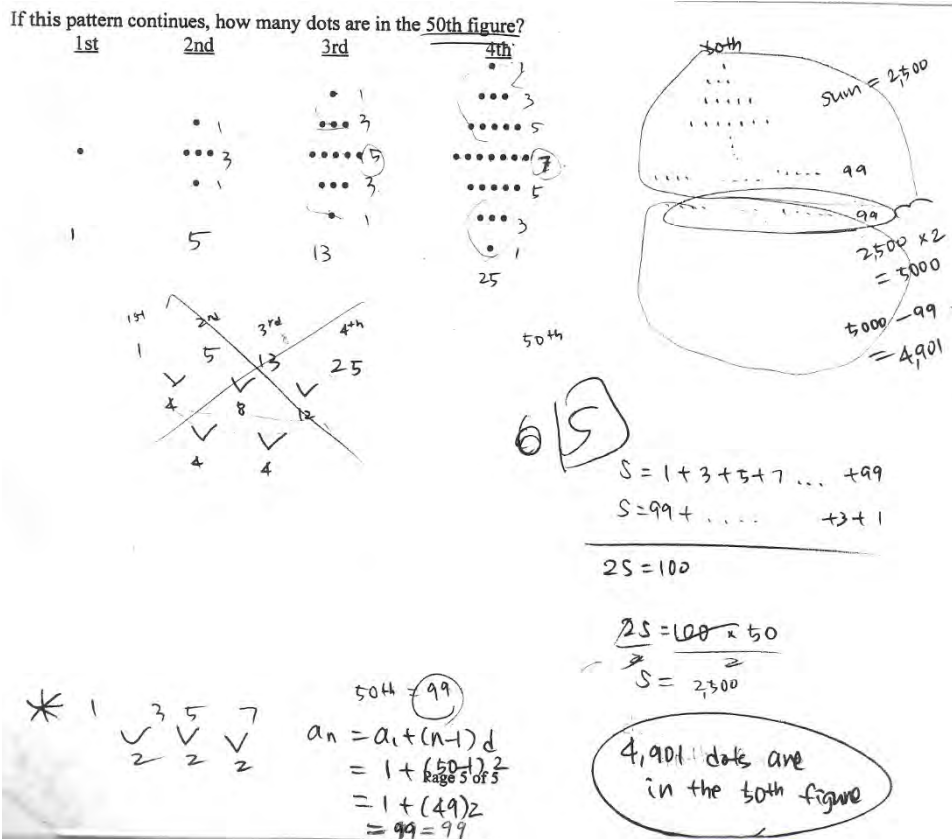 If this pattern continues, how many dots are in the 50th figure?
1st 2nd 3rd 4th
1
5
13
25
1
3
1
1
3
5
3
1
1
3
5
7
5
3
1
50th
sum = 2,500
99
99
2,500 × 2
= 5000
5000 - 99
= 4,901
1st 2nd 3rd 4th
1 5 13 25
4 8 12
4 4
50th
6 5
S = 1 + 3 + 5 + 7 ... + 99
S = 99 + .... + 3 + 1
2S = 100
2S = 100 × 50
2 2
S = 2,500
* 1 3 5 7
2 2 2
50th = 99
an = a1 + (n-1) d
= 1 + (50-1) 2
Page 5 of 5
= 1 + (49)2
= 99 = 99
4,901 dots are
in the 50th figure